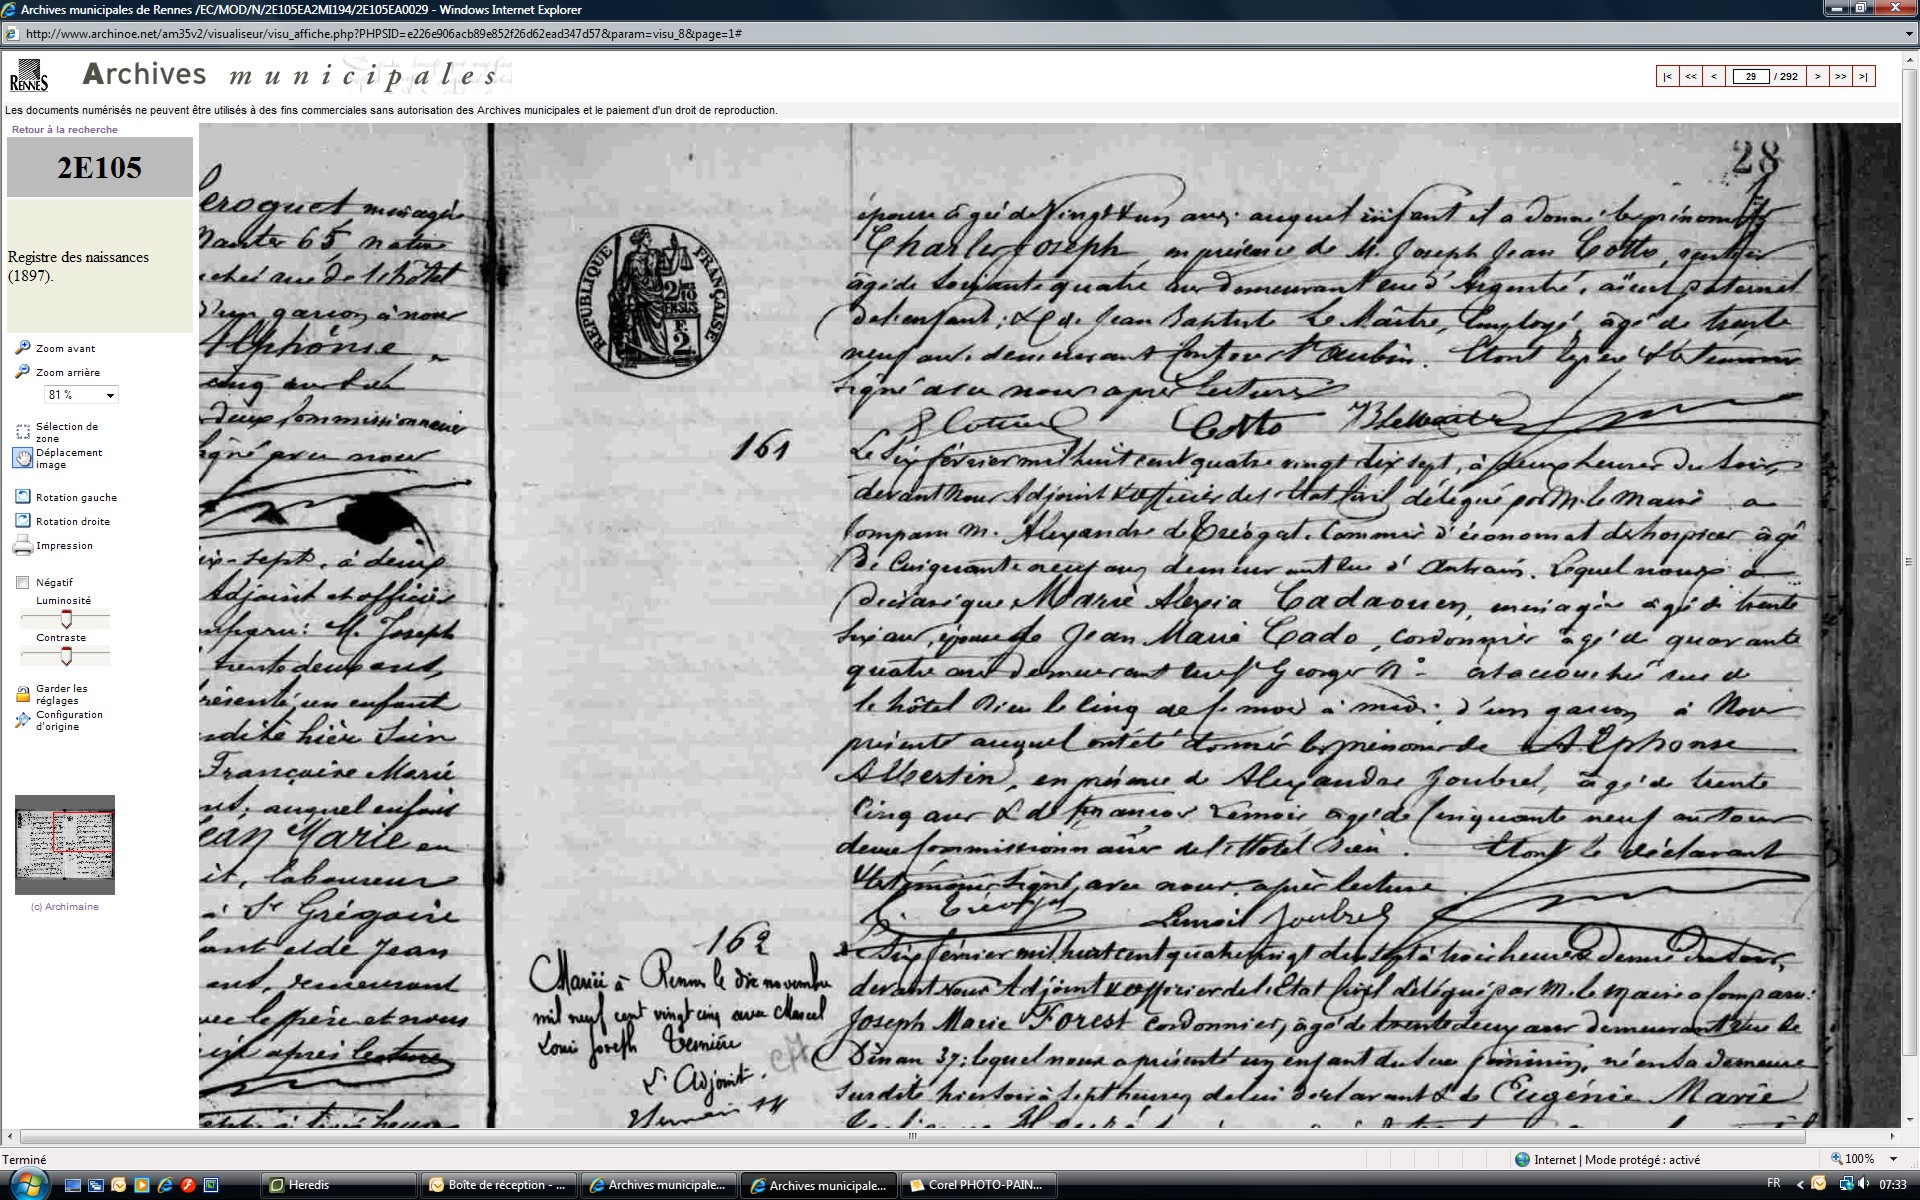 Archives municipales de Rennes /EC/MOD/N/2E105EA2MI194/2E105EA0029 - Windows Internet Explorer
http://www.archinoe.net/am35v2/visualiseur/visu_affiche.php?PHPSID=e226e906acb89e852f26d62ead347d57&param=visu_8&page=1#
RENNES
Archives municipales
|< << < 29 / 292 > >> >|
Les documents numérisés ne peuvent être utilisés à des fins commerciales sans autorisation des Archives municipales et le paiement d'un droit de reproduction.
Retour à la recherche
2E105
Registre des naissances
(1897).
Zoom avant
Zoom arrière
81 %
Sélection de
zone
Déplacement
image
Rotation gauche
Rotation droite
Impression
Négatif
Luminosité
Contraste
Garder les
réglages
Configuration
d'origine
(c) Archimaine
Nantes 65 native
rue de l'hôtel
d'un garçon à nous
Alphonse
deux commissionnaires
signé avec nous
sept, à deux
Adjoint et officier
M. Joseph
trente deux ans,
présenté un enfant
Françoise Marie
auquel enfant
Jean Marie en
laboureur
à St Grégoire
et de Jean
demeurant
le père et nous
après lecture
REPUBLIQUE FRANÇAISE
28
épouse âgée de Vingt & un ans. auquel enfant il a donné les prénoms de
Charles Joseph, en présence de M. Joseph Jean Cotto, rentier
âgé de soixante quatre ans demeurant rue d'Argentré, aïeul paternel
de l'enfant; & de Jean Baptiste Le Maître, Employé, âgé de trente
neuf ans. demeurant St Aubin. Etont le père & les temoins
signé avec nous après lecture
Cotto
161
Le Six février mil huit cent quatre vingt dix sept, à deux heures du soir,
devant Nous Adjoint & officier de l'Etat Civil délégué par M. le Maire a
comparu M. Alexandre de Tréogat. Commis d'économat des hospices âgé
de Cinquante neuf ans demeurant rue d'Antrain. Lequel nous a
déclaré que Marie Alexia Cadaouen, ménagère âgée de trente
six ans, épouse de Jean Marie Cado, cordonnier âgé de quarante
quatre ans demeurant rue St Georges N° est accouchée rue de
l'hôtel Dieu le Cinq de ce mois à midi, d'un garçon à Nous
présenté auquel ont été donnés les prénoms de Alphonse
Albertin, en présence de Alexandre Joubrel, âgé de trente
cinq ans & de François Lemoir âgé de Cinquante neuf ans tous
deux commissionnaires de l'Hôtel Dieu. Etont le déclarant
& les témoins signé, avec nous après lecture.
Tréogat Lemoir Joubrel
162
Mariée à Rennes le dix novembre
mil neuf cent vingt cinq avec Marcel
Louis Joseph
L'Adjoint.
Le Six février mil huit cent quatre vingt dix sept à trois heures & demie du soir,
devant Nous Adjoint & officier de l'Etat Civil délégué par M. le Maire a comparu:
Joseph Marie Forest cordonnier, âgé de trente deux ans demeurant rue de
Dinan 37; lequel nous a présenté un enfant du sexe féminin, né en sa demeure
susdite hier soir à sept heures, de lui déclarant & de Eugénie Marie
Terminé
Internet | Mode protégé : activé
100%
Heredis
Boîte de réception - ...
Archives municipale...
Archives municipale...
Corel PHOTO-PAIN...
FR
07:33